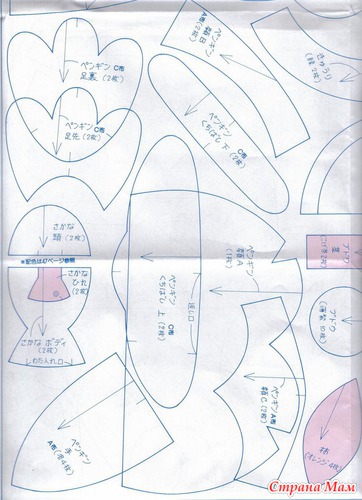 ペンギン C布
足裏 (2枚)
ペンギン C布
足先 (2枚)
A布
(2枚)
ペンギン
頭B
きゅうり
(緑 2枚)
ペンギン
くちばし 下 (2枚)
C布
さかな
頭 (2枚)
※配色は47ページ参照
さかな
ひれ
(2枚)
さかな ボディ
(2枚)
わた入れ口
ペンギン
くちばし 上 (2枚)
C布
返し口
ペンギン
頭A
(1枚)
ペンギン A布
頭C (2枚)
ブドウ
茎
ブドウ
(薄紫 10枚)
ペンギン
手
A布
(各4枚)
(オレンジ 4枚)
Страна Мам